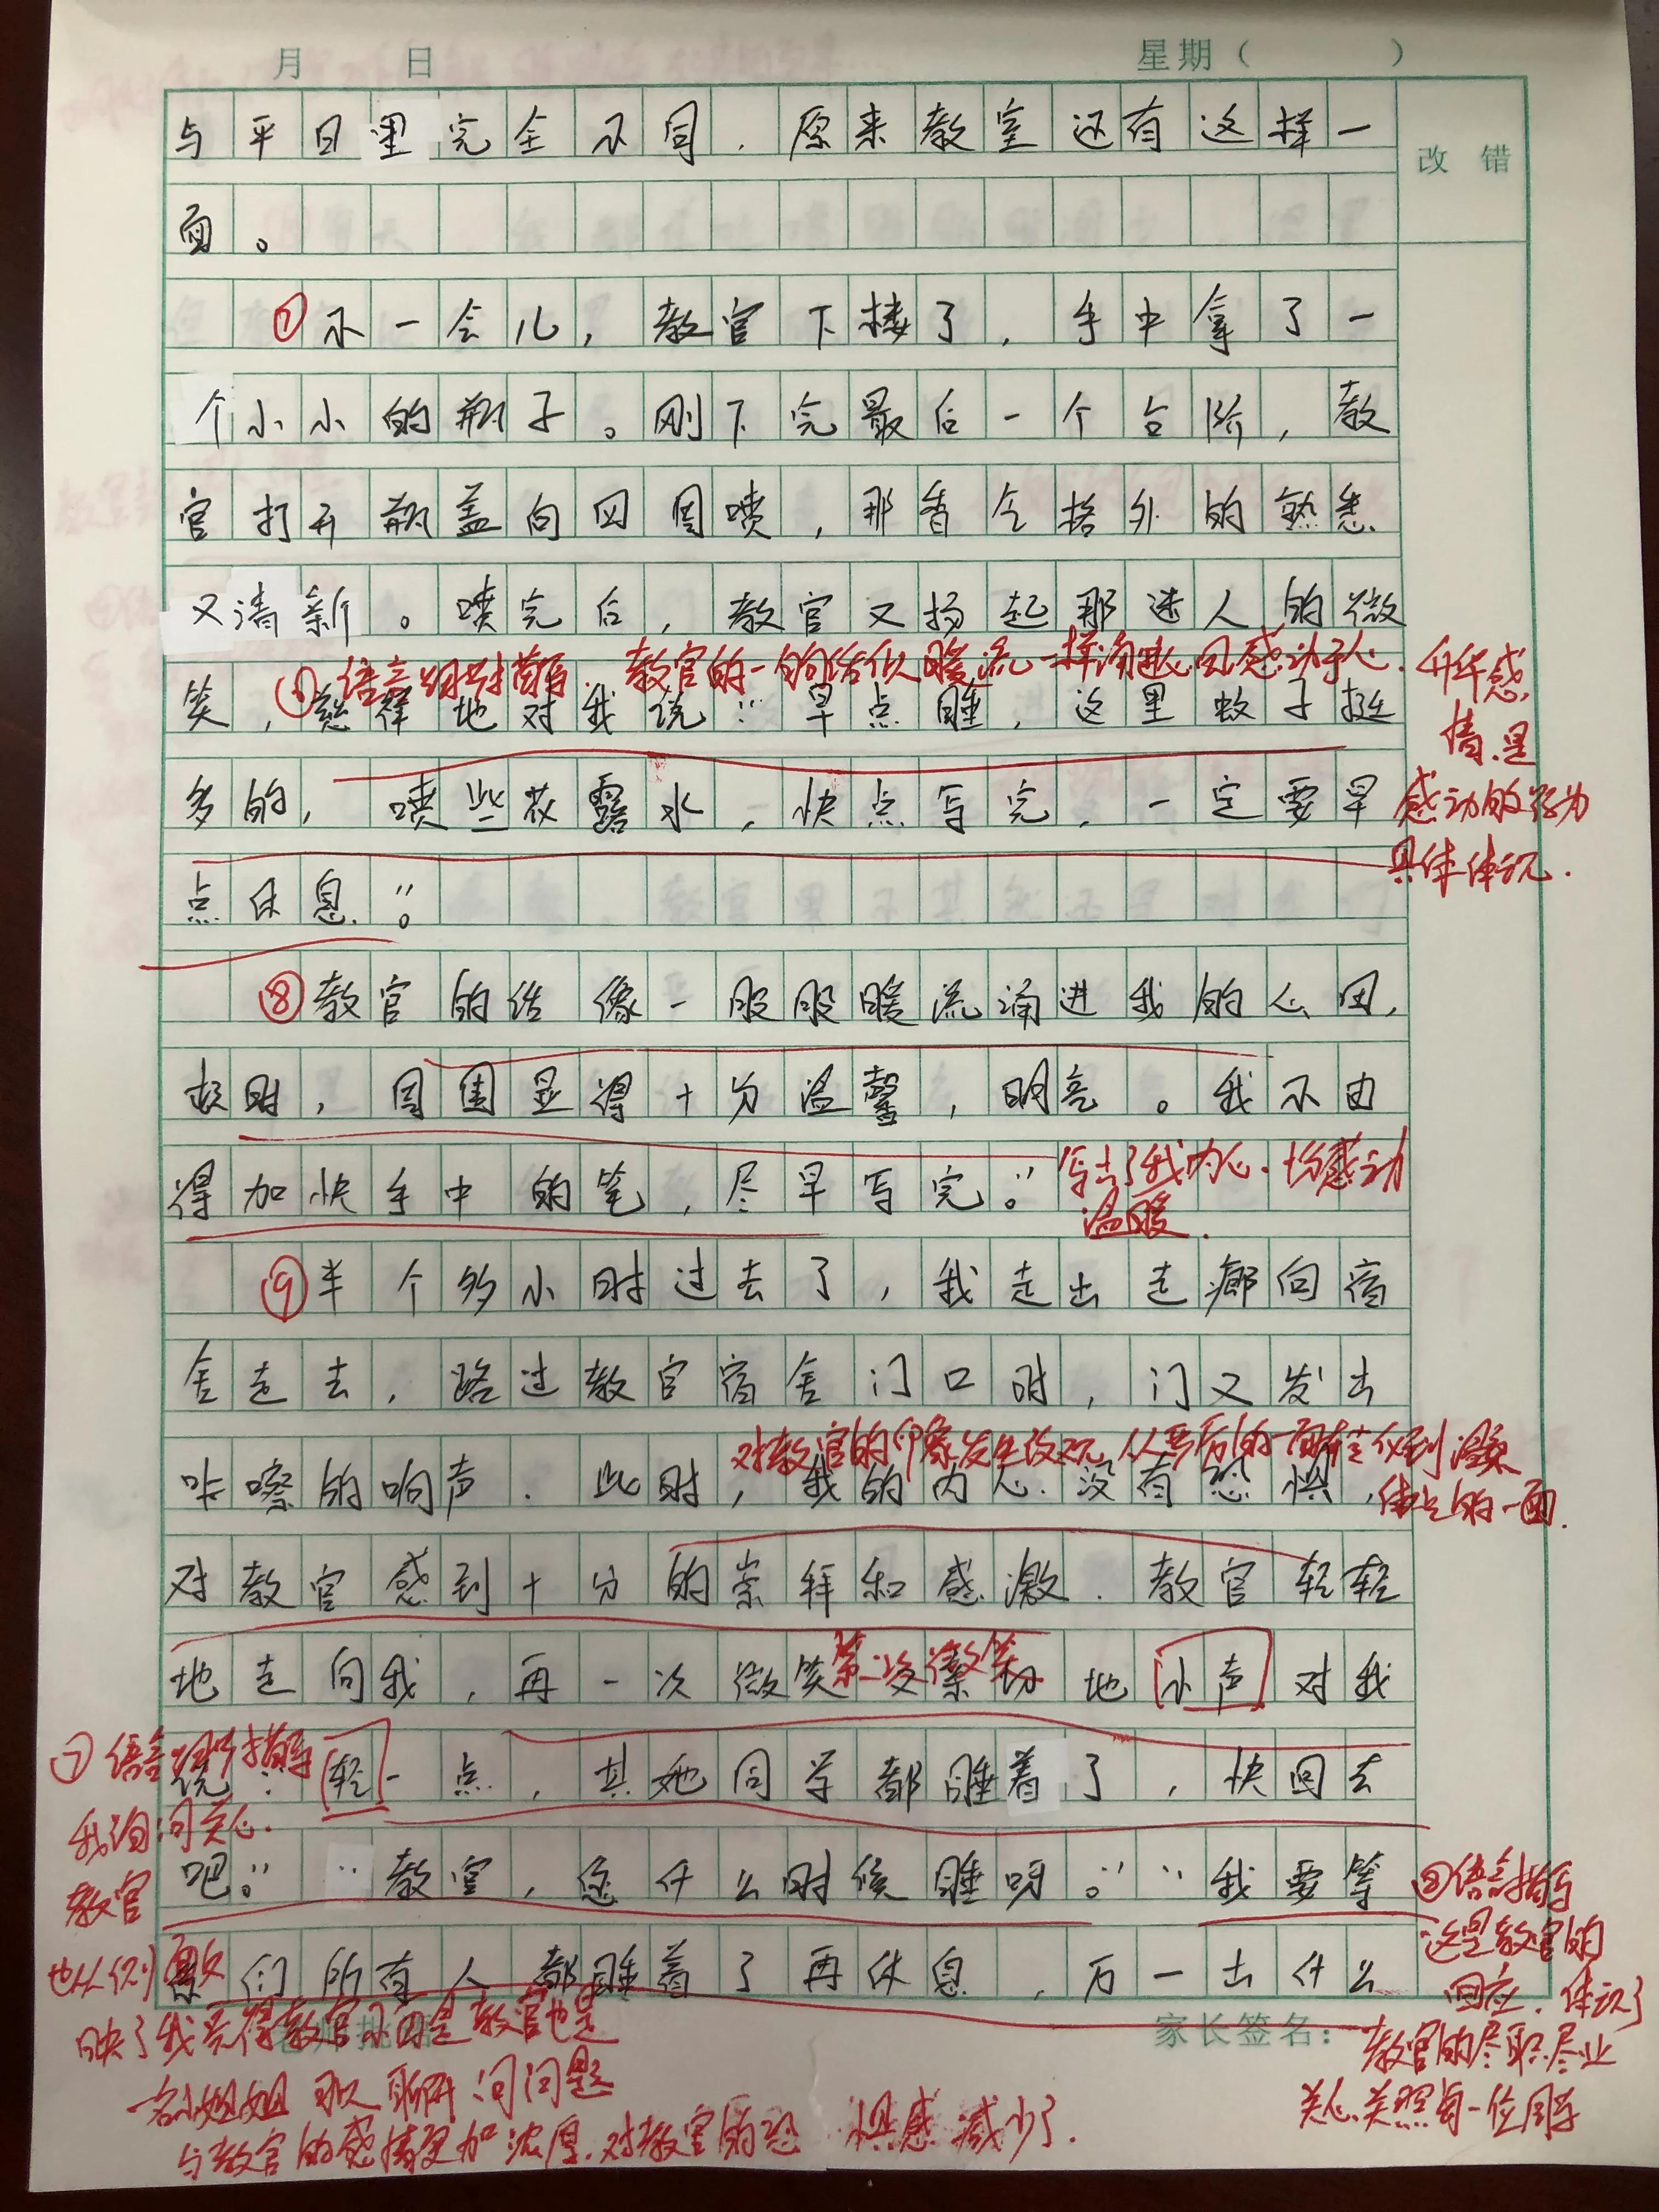 月 日 星期（ ）
改 错
与平日里完全不同，原来教室还有这样一
面。
⑦不一会儿，教官下楼了，手中拿了一
个小小的瓶子。刚下完最后一个台阶，教
官打开瓶盖向四周喷，那香令格外的熟悉
又清新。喷完后，教官又扬起那迷人的微
⑥语言细节描写，教官的一句话似暖流一样涌进心田感动于心.
升华感
情.是
感动的行为
具体体现.
笑，慈祥地对我说：“早点睡，这里蚊子挺
多的，喷些花露水，快点写完，一定要早
点休息.”。
⑧教官的话像一股股暖流涌进我的心田,
顿时，周围显得十分温馨，明亮。我不由
得加快手中的笔，尽早写完。”
写出了我内心.十分感动
温暖.
⑨半个多小时过去了，我走出走廊向宿
舍走去，路过教官宿舍门口时，门又发出
对教官的印象发生改观,从严厉的一面转化到温柔
体贴的一面.
咔嚓的响声.此时，我的内心没有恐惧，
对教官感到十分的崇拜和感激.教官轻轻
第二次微笑
地走向我，再一次微笑 地小声对我
⑦语言细节描写
说：轻一点，其她同学都睡着了，快回去
我询问关心.
吧。”“教官，您什么时候睡呀。”“我要等
教官
⑧语言描写
这是教官的
回应.体现了
教官的尽职尽业
关心关照每一位同学
们所有人都睡着了再休息，万一出什么
家长签名：
映了我觉得教官不只是教官也是
一名小姐姐 聊 问问题
与教官的感情更加浓厚.对教官的恐惧感减少了.